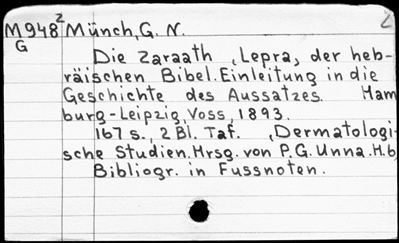 M948² Münch, G. N.
G
Die Zaraath (Lepra) der heb-
räischen Bibel. Einleitung in die
Geschichte des Aussatzes. Ham
burg-Leipzig, Voss, 1893.
167 s., 2 Bl. Taf. (Dermatologi-
sche Studien. Hrsg. von P. G. Unna. H. 6
Bibliogr. in Fussnoten.